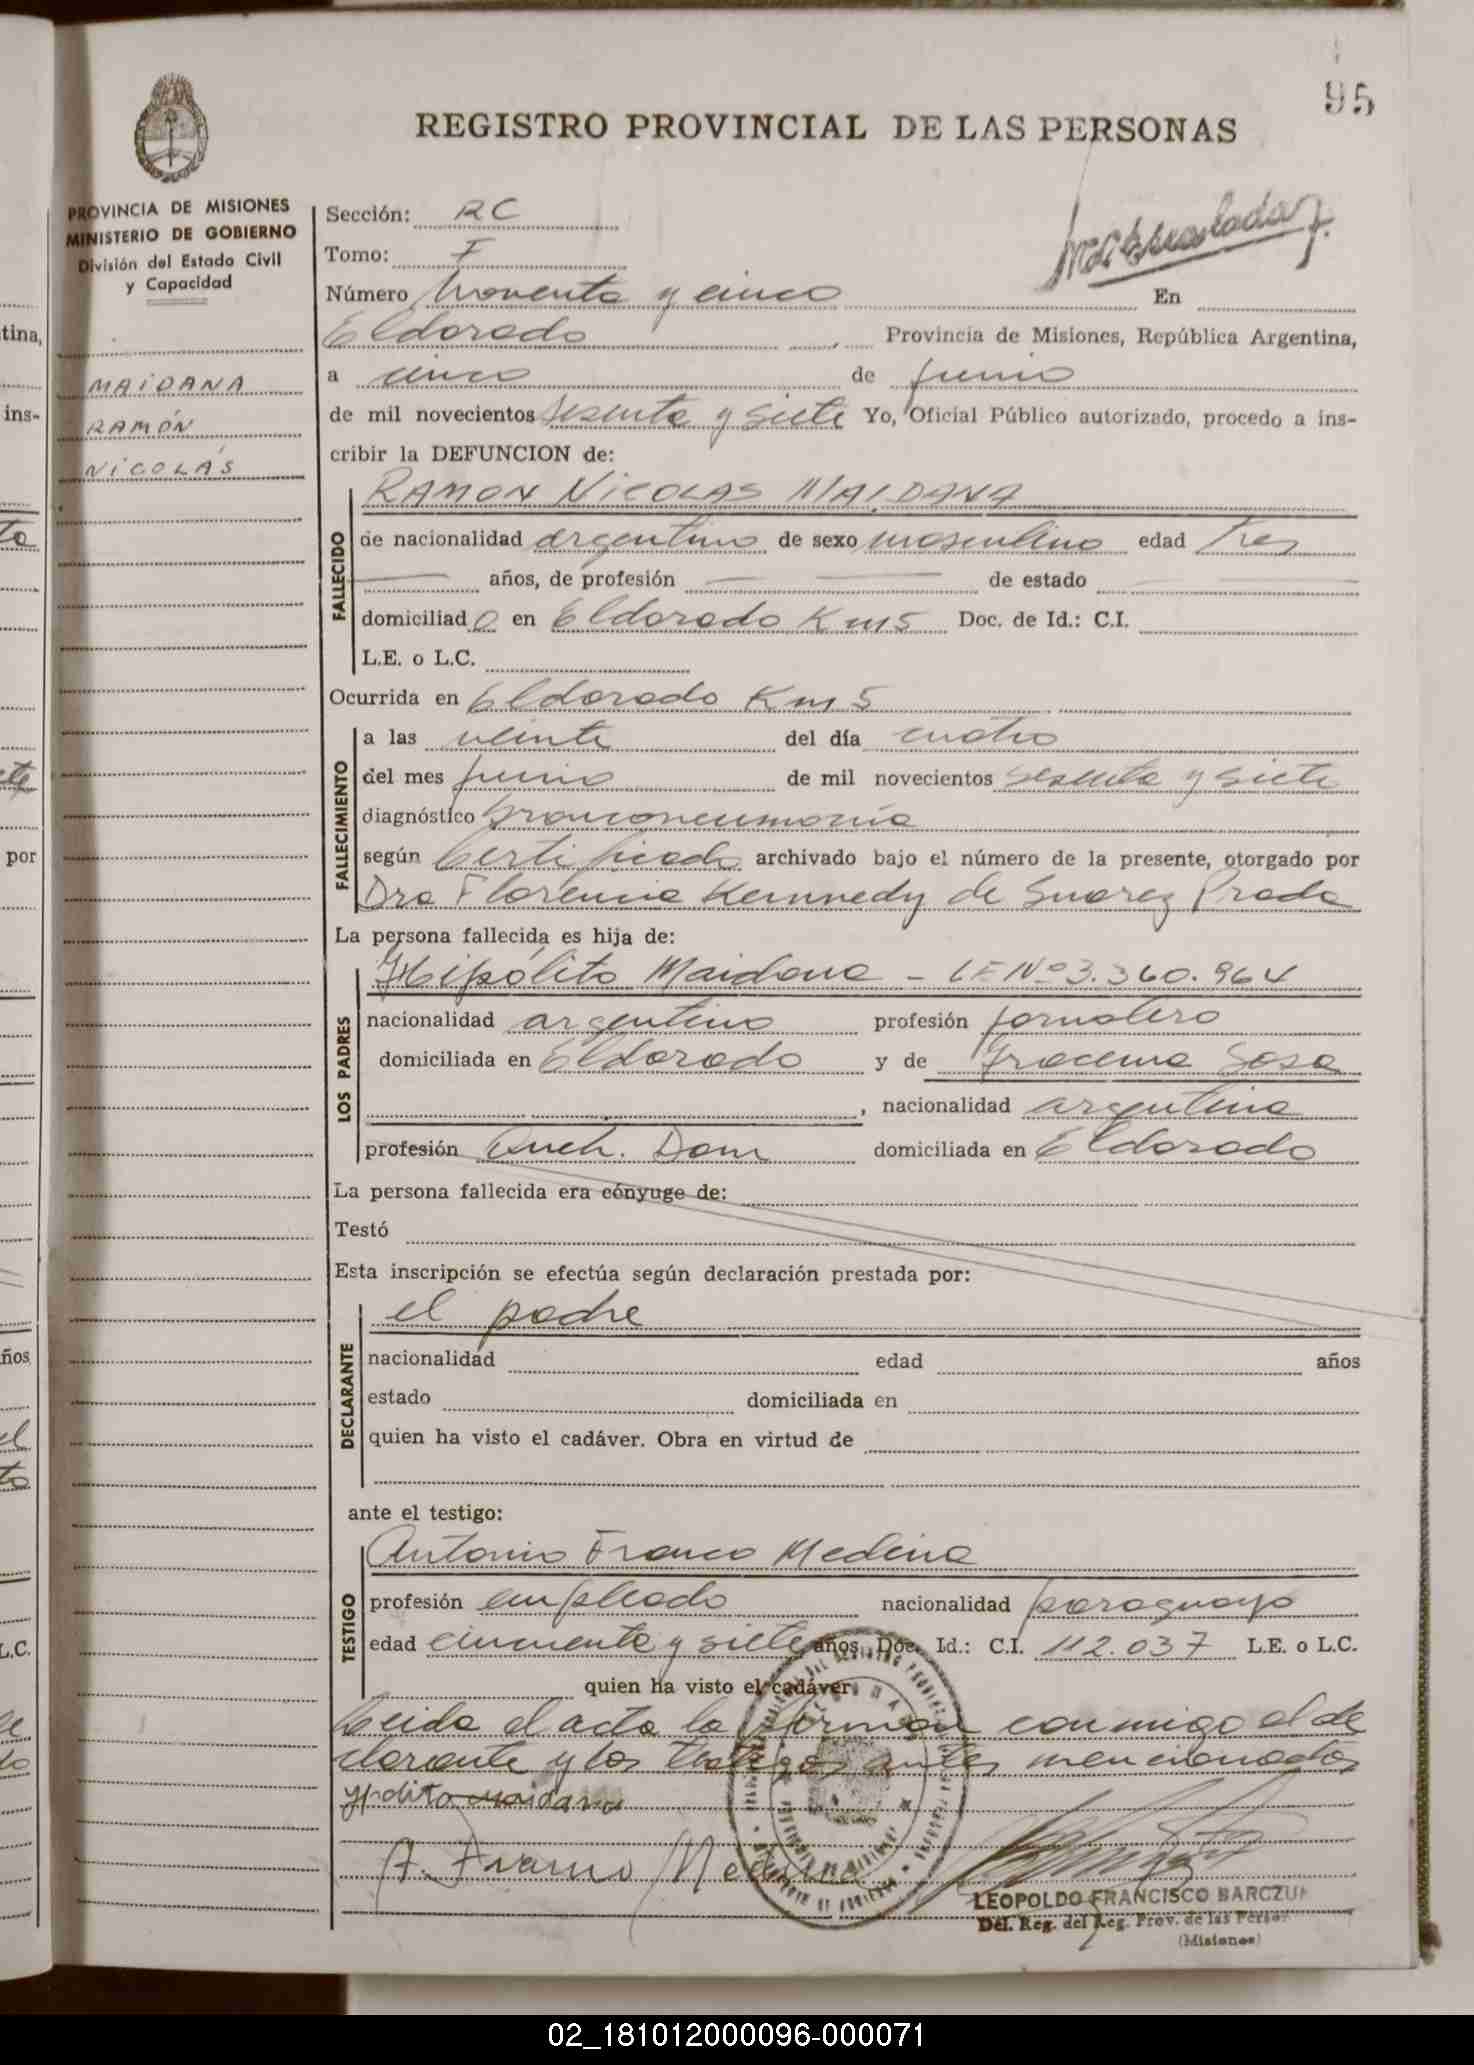 95
REGISTRO PROVINCIAL DE LAS PERSONAS
PROVINCIA DE MISIONES
MINISTERIO DE GOBIERNO
División del Estado Civil
y Capacidad
MAIDANA
RAMÓN
NICOLÁS
Sección: RC
Tomo: I
Número Noventa y cinco En
Eldorado Provincia de Misiones, República Argentina,
a cinco de junio
de mil novecientos sesenta y siete Yo, Oficial Público autorizado, procedo a ins-
cribir la DEFUNCION de:
FALLECIDO
RAMON NICOLAS MAIDANA
de nacionalidad argentino de sexo masculino edad Tres
años, de profesión de estado
domiciliado en Eldorado Km 5 Doc. de Id.: C.I.
L.E. o L.C.
Ocurrida en Eldorado Km 5
FALLECIMIENTO
a las veinte del día cuatro
del mes junio de mil novecientos sesenta y siete
diagnóstico bronconeumonía
según Certificado archivado bajo el número de la presente, otorgado por
Dra Florencia Kennedy de Suarez Prado
La persona fallecida es hija de:
LOS PADRES
Hipólito Maidana - LE Nº 3.360.964
nacionalidad argentino profesión jornalero
domiciliada en Eldorado y de Iracema Sosa
, nacionalidad argentina
profesión Queh. Dom domiciliada en Eldorado
La persona fallecida era cónyuge de:
Testó
Esta inscripción se efectúa según declaración prestada por:
DECLARANTE
el padre
nacionalidad edad años
estado domiciliada en
quien ha visto el cadáver. Obra en virtud de
ante el testigo:
TESTIGO
Antonio Franco Medina
profesión empleado nacionalidad paraguayo
edad cincuenta y siete años. Doc. Id.: C.I. 112.037 L.E. o L.C.
quien ha visto el cadáver
Leida el acta la firman conmigo el de
clarante y los testigos antes mencionados
Ypolito maidana
A. Franco Medina
LEOPOLDO FRANCISCO BARCZUK
Del. Reg. del Reg. Prov. de las Person
(Misiones)
02_181012000096-000071